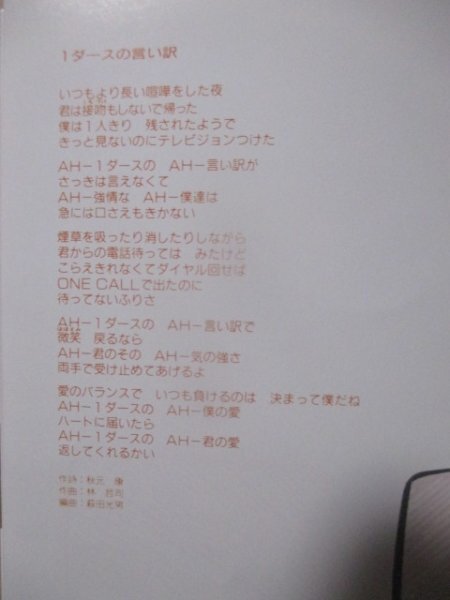 1ダースの言い訳
いつもより長い喧嘩をした夜
君は接吻もしないで帰った
僕は1人きり 残されたようで
きっと見ないのにテレビジョンつけた
AH－1ダースの AH－言い訳が
さっきは言えなくて
AH－強情な AH－僕達は
急には口さえもきかない
煙草を吸ったり消したりしながら
君からの電話待っては みたけど
こらえきれなくてダイヤル回せば
ONE CALLで出たのに
待ってないふりさ
AH－1ダースの AH－言い訳で
微笑 戻るなら
AH－君のその AH－気の強さ
両手で受け止めてあげるよ
愛のバランスで いつも負けるのは 決まって僕だね
AH－1ダースの AH－僕の愛
ハートに届いたら
AH－1ダースの AH－君の愛
返してくれるかい
作詩：秋元 康
作曲：林 哲司
編曲：萩田光男